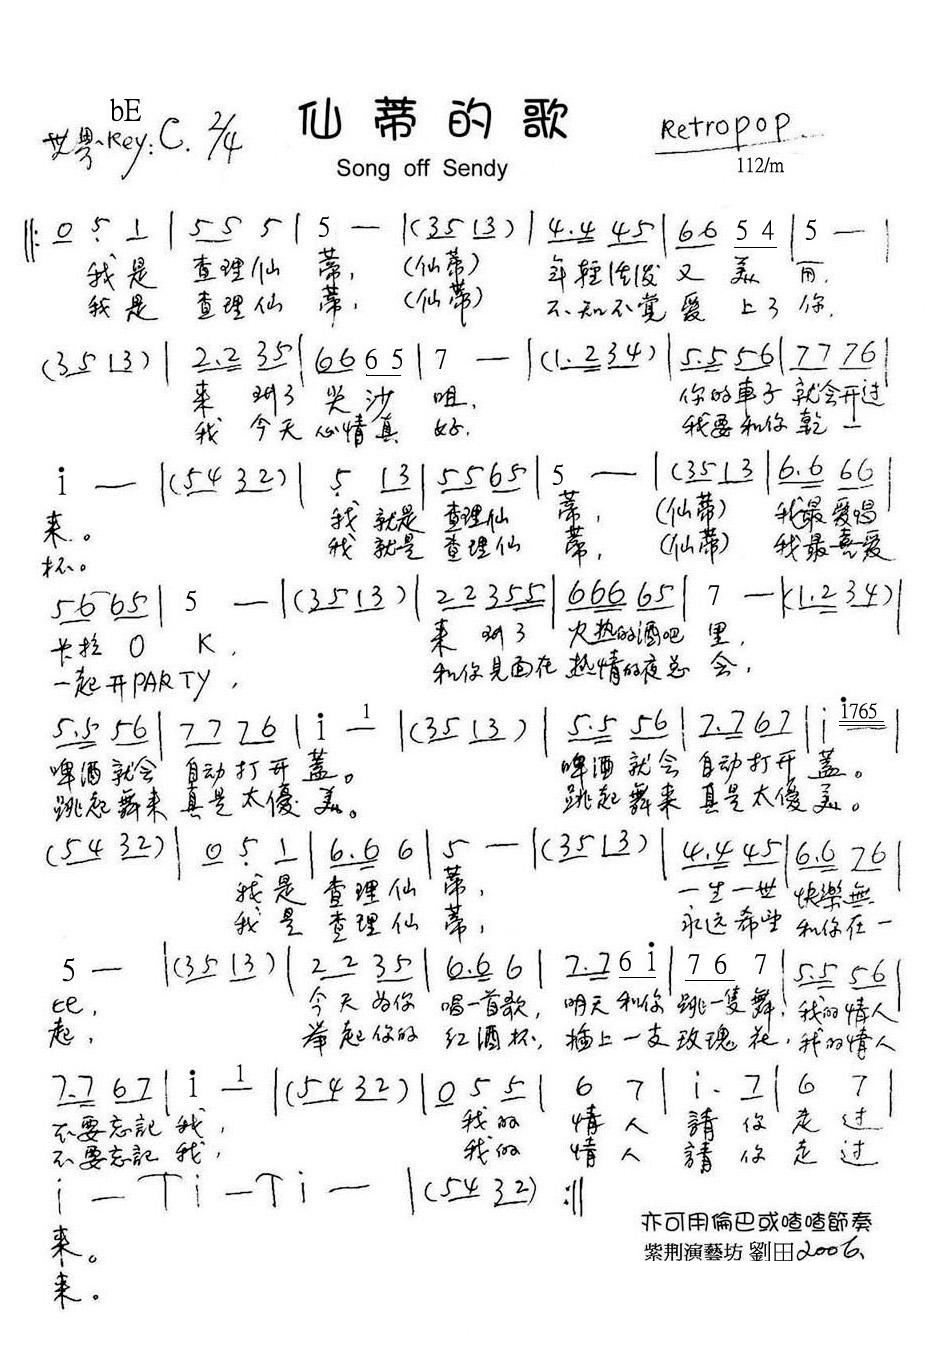 bE
仙蒂的歌
Key: C. 2/4
Retropop
Song off Sendy
112/m
‖: 0 5 1 | 5 5 5 | 5 — | (3 5 1 3) | 4. 4 4 5 | 6 6 5 4 | 5 — |
我是 查理仙 蒂, (仙蒂) 年轻 又 美
我是 查理仙 蒂, (仙蒂) 不知不觉 爱 上了 你.
(3 5 1 3) | 2. 2 3 5 | 6 6 6 5 | 7 — | (1. 2 3 4) | 5. 5 5 6 | 7 7 7 6 |
来 了 尖 沙 咀. 你的車子 就会开过
我 今天 心情真 好. 我要和你 乾一
i — | (5 4 3 2) | 5 1 3 | 5 5 6 5 | 5 — | (3 5 1 3 | 6. 6 6 6 |
来。 我 就是 查理仙 蒂, (仙蒂) 我最爱唱
杯。 我 就是 查理仙 蒂, (仙蒂) 我最喜爱
5 6 6 5 | 5 — | (3 5 1 3) | 2 2 3 5 5 | 6 6 6 6 5 | 7 — | (1. 2 3 4) |
卡拉 O K, 来 了 火热的酒吧 里,
一起开PARTY, 和你見面在 热情的夜总 会,
5. 5 5 6 | 7 7 7 6 | i — 1 | (3 5 1 3) | 5. 5 5 6 | 7. 7 6 7 | i i765 |
啤酒就会 自动打开 蓋。 啤酒就会 自动打开 蓋。
跳起舞来 真是太優 美。 跳起舞来 真是太優 美。
(5 4 3 2) | 0 5 1 | 6. 6 6 | 5 — | (3 5 1 3) | 4. 4 4 5 | 6. 6 7 6 |
我是 查理仙 蒂, 一生一世 快樂無
我是 查理仙 蒂, 永远希望 和你在一
5 — | (3 5 1 3) | 2 2 3 5 | 6. 6 6 | 7. 7 6 i | 7 6 7 | 5. 5 5 6 |
比, 今天为你 唱一首歌, 明天和你 跳一隻舞, 我的情人
起, 举起你的 红酒杯, 插上一支 玫瑰花, 我的情人
7. 7 6 7 | i 1 | (5 4 3 2) | 0 5 5 | 6 7 | i. 7 | 6 7 |
不要忘記 我, 我的 情人 請你 走过
不要忘記 我, 我的 情人 請你 走过
i — | i — | i — | (5 4 3 2) :‖
来。
来。
亦可用倫巴或喳喳節奏
紫荆演藝坊 劉田2006.